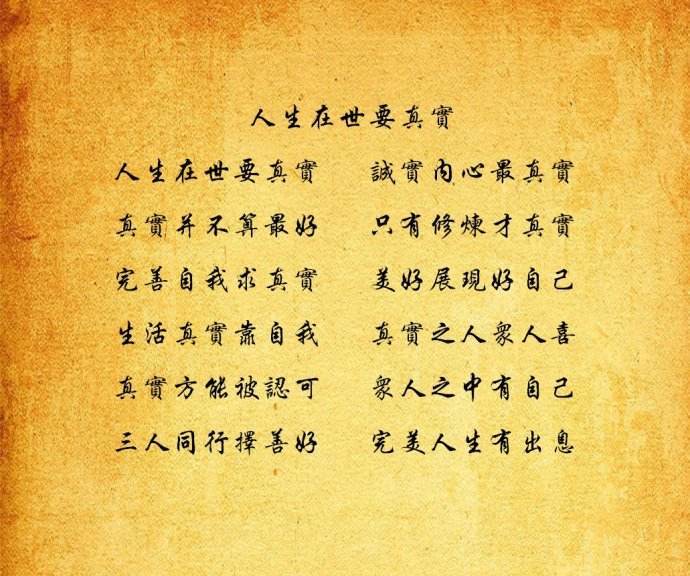 人生在世要真實
人生在世要真實 誠實內心最真實
真實并不算最好 只有修煉才真實
完善自我求真實 美好展現好自己
生活真實靠自我 真實之人衆人喜
真實方能被認可 衆人之中有自己
三人同行擇善好 完美人生有出息